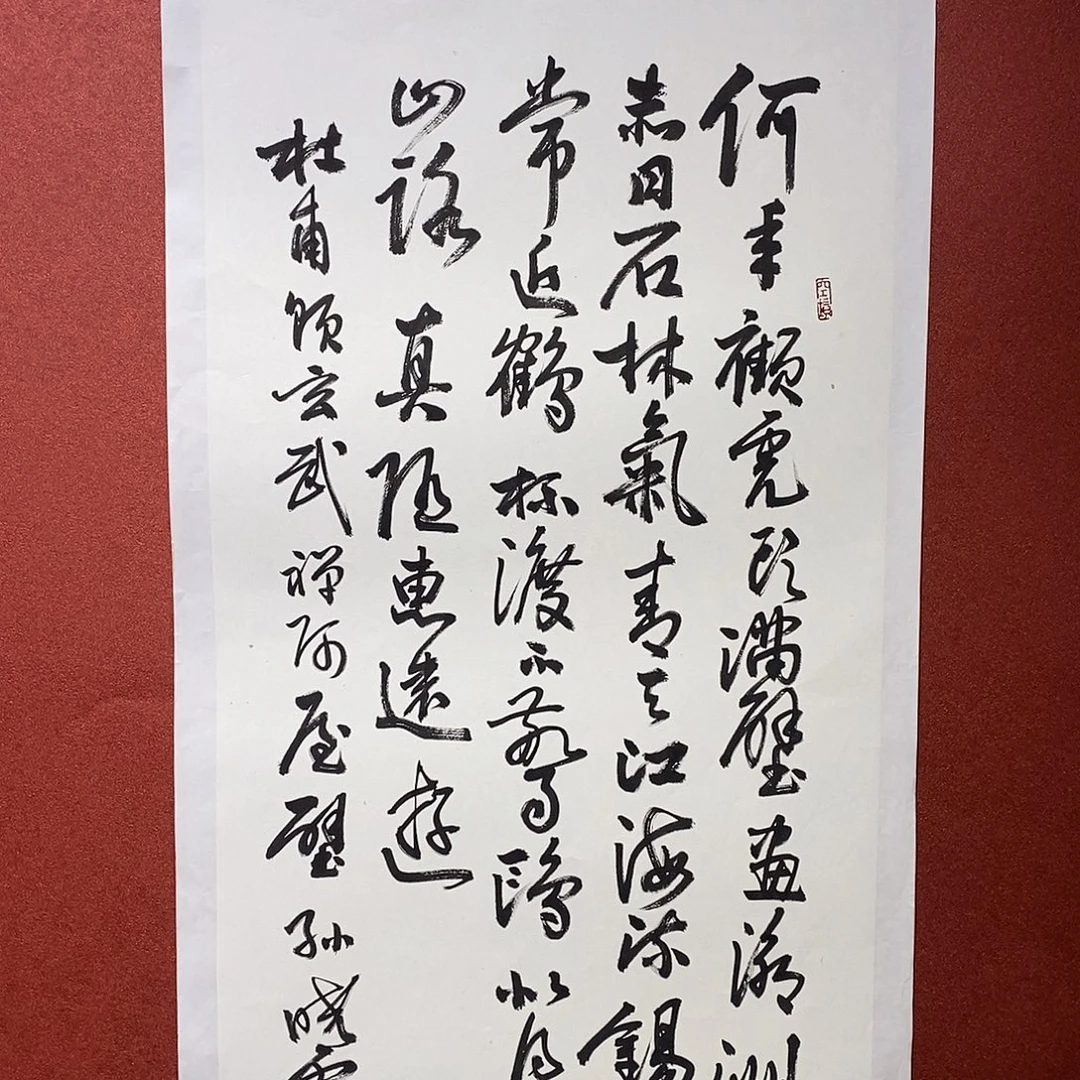 何年顧虎頭滿壁畫瀛洲
赤日石林氣青天江海流錫
常近鶴杯渡不驚鷗似得
山路真随惠遠遊
杜甫題玄武禅師屋壁 孫曉雲